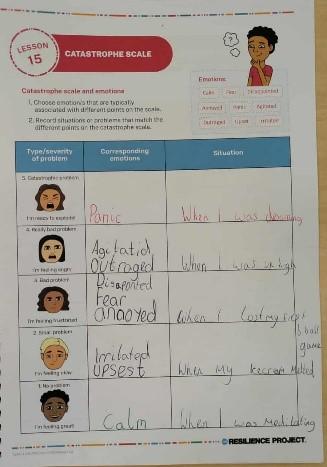 LESSON
15
CATASTROPHE SCALE
Catastrophe scale and emotions
1. Choose emotion/s that are typically
associated with different points on the scale.
2. Record situations or problems that match the
different points on the catastrophe scale.
Emotions:
Calm Fear Disappointed
Annoyed Panic Agitated
Outraged Upset Irritated
Type/severity
of problem
Corresponding
emotions
Situation
5. Catastrophic problem
I'm ready to explode!
Panic
When I was drowning
4. Really bad problem
I'm feeling angry
Agitatid
Outraged
When I was up high
3. Bad problem
I'm feeling frustrated
Disaponted
Fear
anoyed
When I Lost my
ball
game
2. Small problem
I'm feeling okay
Irritated
UPSEST
When My Icecream Melted
1. No problem
I'm feeling great!
Calm
When I was Meditating
© RESILIENCE PROJECT.